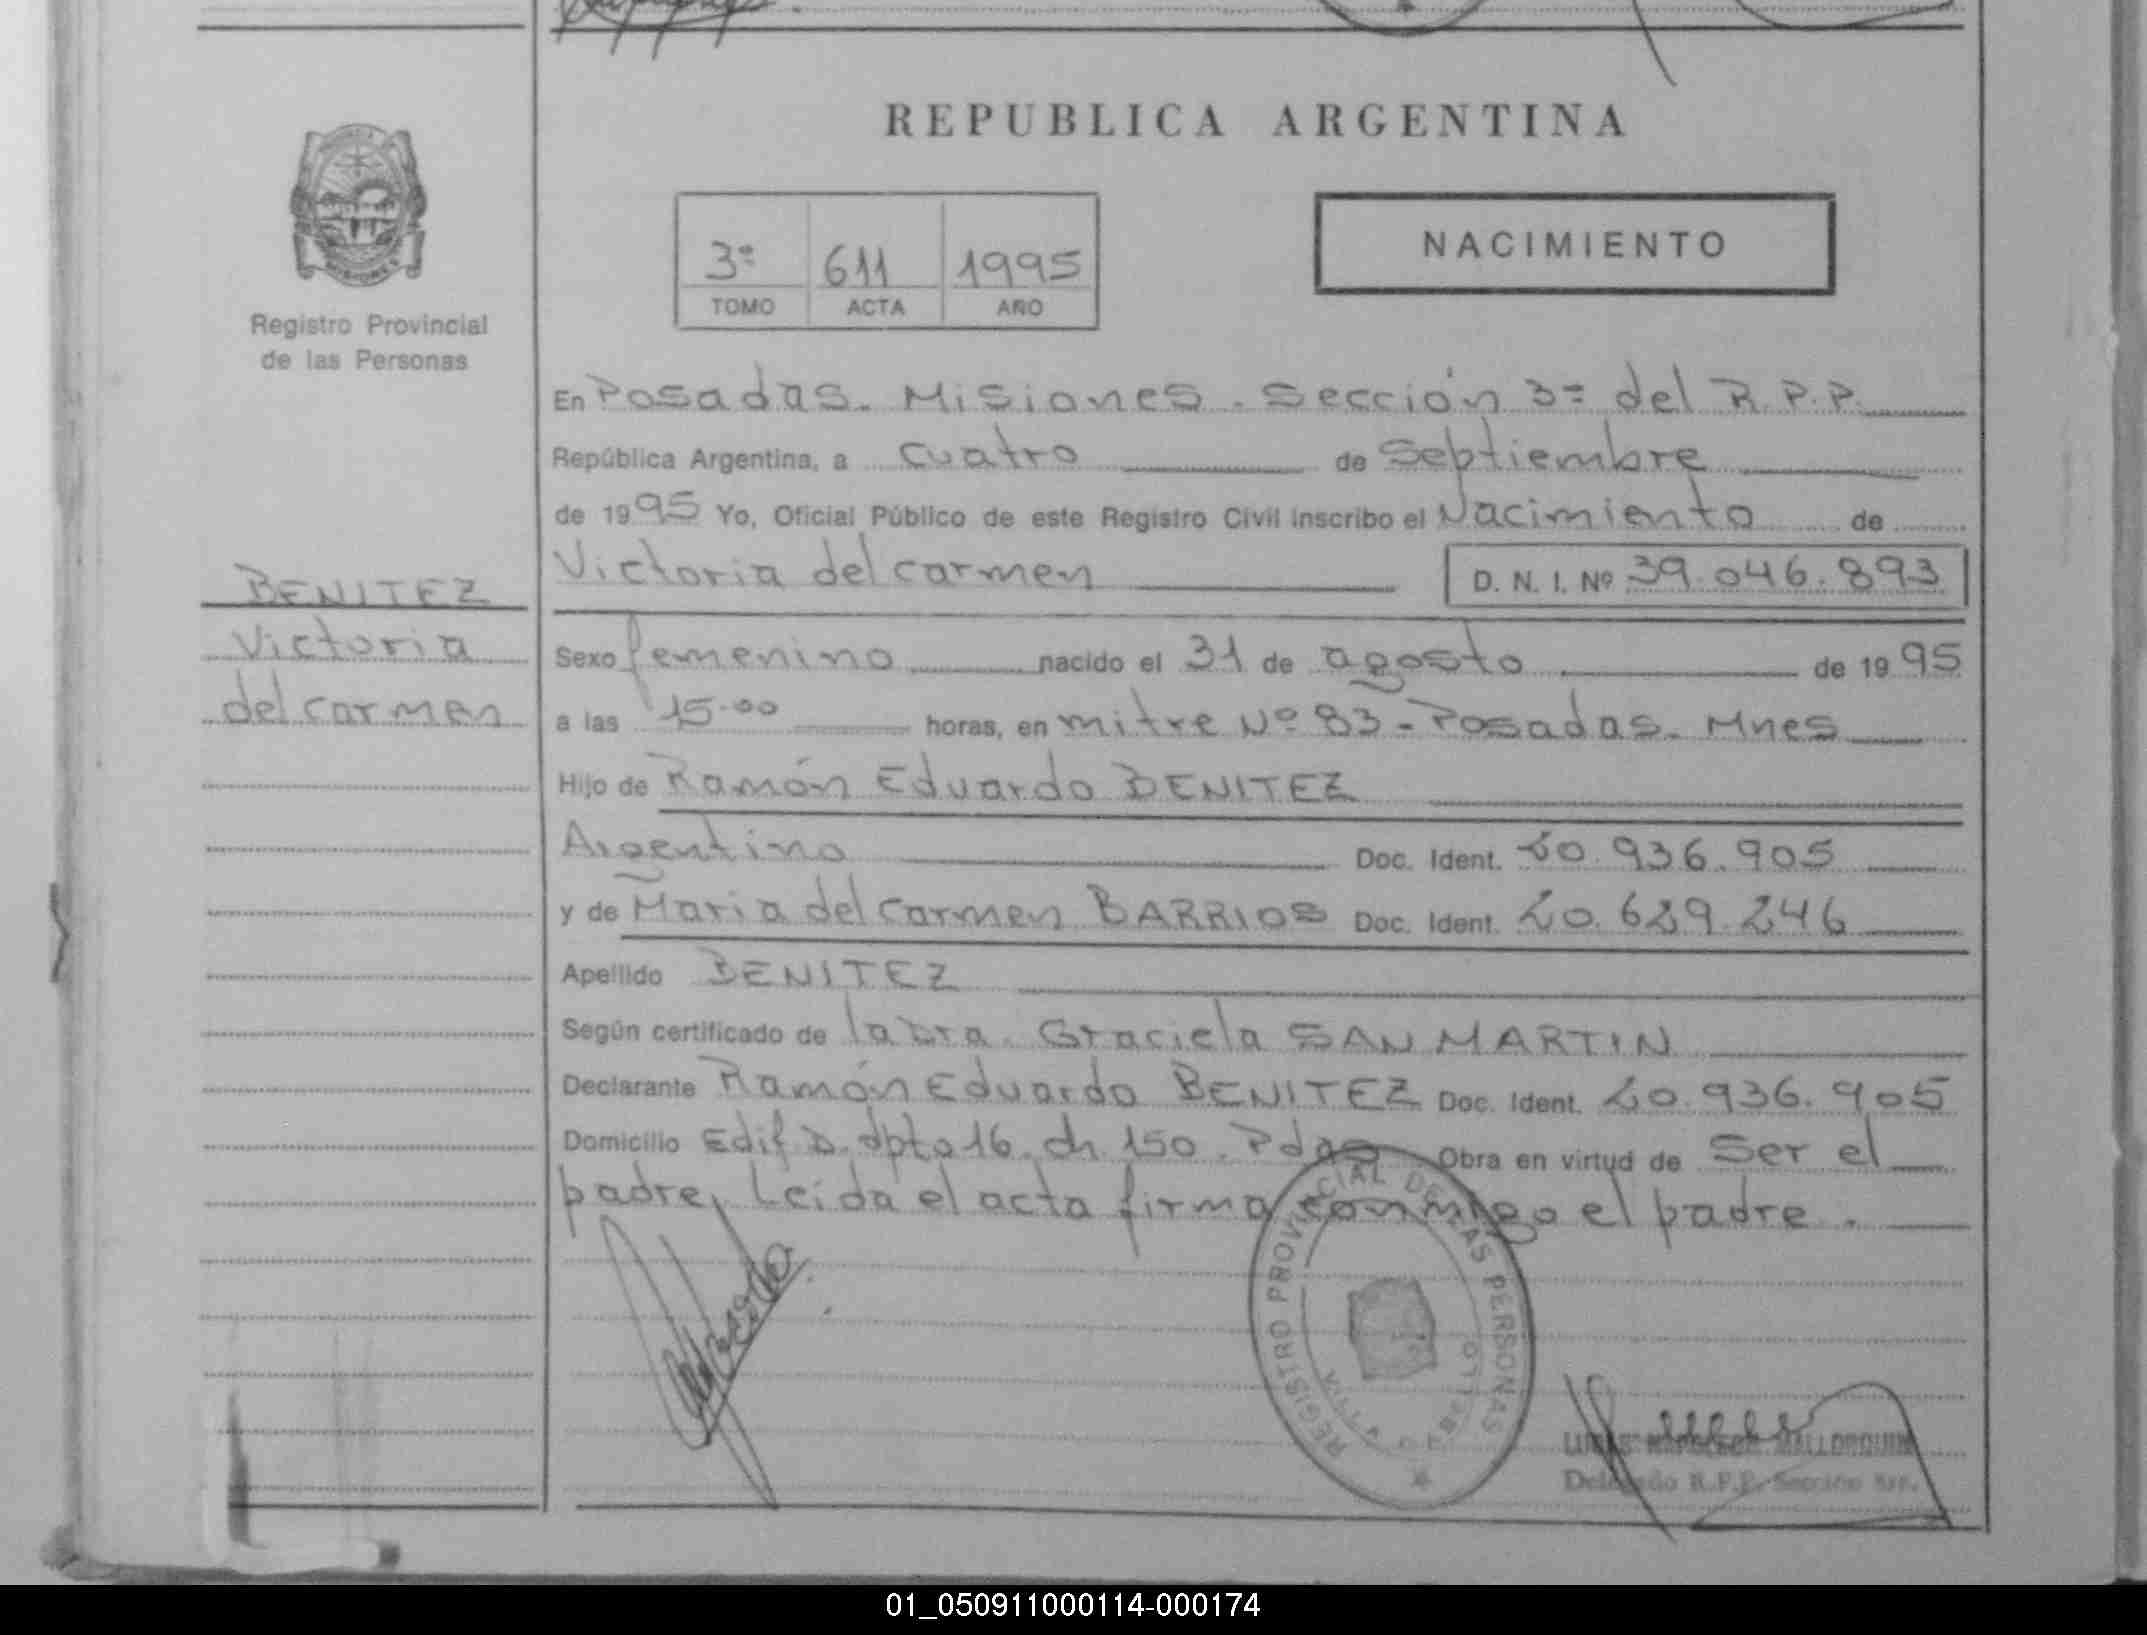 REPUBLICA ARGENTINA
MISIONES
Registro Provincial
de las Personas
3º 611 1995
TOMO ACTA AÑO
NACIMIENTO
En Posadas. Misiones. Sección 3ª del R.P.P.
República Argentina, a cuatro de Septiembre
de 1995 Yo, Oficial Público de este Registro Civil inscribo el Nacimiento de
Victoria del carmen D. N. I. Nº 39.046.893
BENITEZ
Victoria
del carmen
Sexo femenino nacido el 31 de agosto de 1995
a las 15.00 horas, en mitre Nº 83 - Posadas. Mnes
Hijo de Ramón Eduardo BENITEZ
Argentino Doc. Ident. 20.936.905
y de Maria del carmen BARRIOS Doc. Ident. 20.629.246
Apellido BENITEZ
Según certificado de la Dra. Graciela SAN MARTIN
Declarante Ramón Eduardo BENITEZ Doc. Ident. 20.936.905
Domicilio Edif D. dpto 16. ch. 150. Pdas Obra en virtud de ser el
padre, Leída el acta firma conmigo el padre.
REGISTRO PROVINCIAL DE LAS PERSONAS
VILLA CABELLO
MALLORQUIN
Delegado R.P.P. Sección 3ra.
01_050911000114-000174